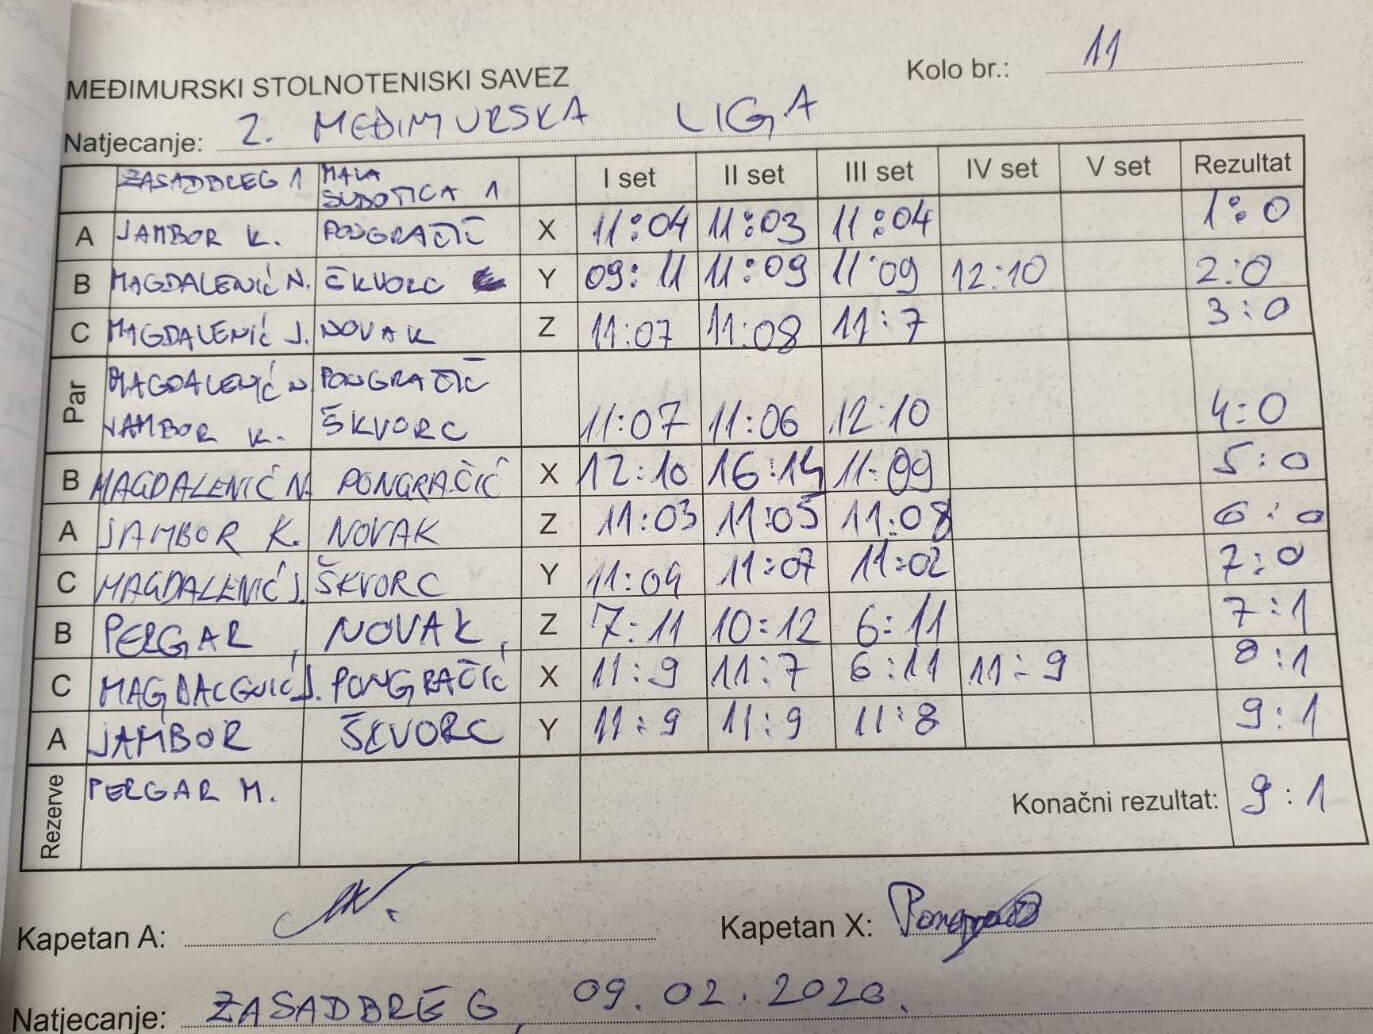 MEĐIMURSKI STOLNOTENISKI SAVEZ Kolo br.: 11
Natjecanje: 2. MEĐIMURSKA LIGA
ZASADBREG 1 MALA SUBOTICA 1 I set II set III set IV set V set Rezultat
A JAMBOR K. PONGRAČIĆ X 11:04 11:03 11:04 1:0
B MAGDALENIĆ N. ŠKVORC Y 09:11 11:09 11:09 12:10 2:0
C MAGDALENIĆ J. NOVAK Z 11:07 11:08 11:7 3:0
Par MAGDALENIĆ N. PONGRAČIĆ
JAMBOR K. ŠKVORC 11:07 11:06 12:10 4:0
B MAGDALENIĆ N. PONGRAČIĆ X 12:10 16:14 11:09 5:0
A JAMBOR K. NOVAK Z 11:03 11:05 11:08 6:0
C MAGDALENIĆ J. ŠKVORC Y 11:04 11:07 11:02 7:0
B PERGAR NOVAK Z 7:11 10:12 6:11 7:1
C MAGDALENIĆ J. PONGRAČIĆ X 11:9 11:7 6:11 11:9 8:1
A JAMBOR ŠKVORC Y 11:9 11:9 11:8 9:1
Rezerve PERGAR M. Konačni rezultat: 9:1
Kapetan A: Kapetan X:
Natjecanje: ZASADBREG, 09.02.2026.